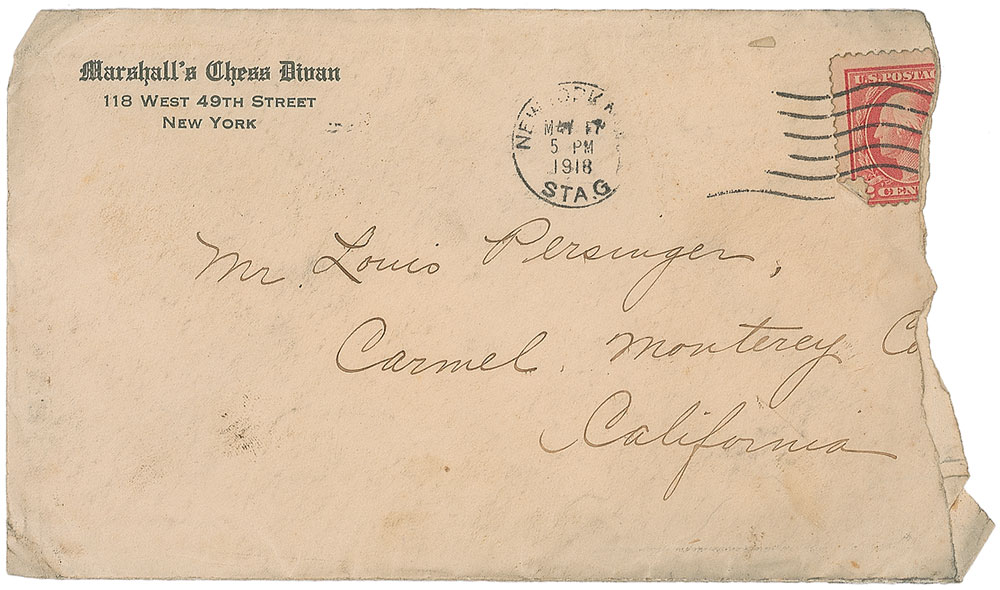 Marshall's Chess Divan
118 WEST 49TH STREET
NEW YORK
NEW YORK
MAY 17
5 PM
1918
STA.G.
U.S. POSTAG
CEN
Mr. Louis Persinger,
Carmel, Monterey Co
California